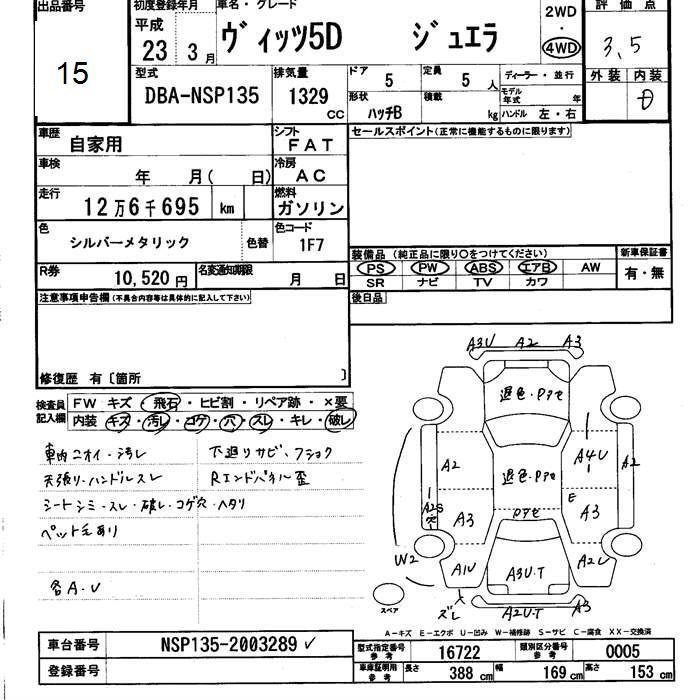 出品番号
15
初度登録年月
平成
23 3月
車名・グレード
ヴィッツ5D ジュエラ
2WD
・
4WD
評価点
3.5
外装 内装
型式
DBA-NSP135
排気量
1329
CC
ドア
5
定員
5 人
形状
ハッチB
積載
kg
ディーラー・並行
モデル年式 年
ハンドル 左・右
車歴
自家用
シフト
FAT
車検
年 月( 日)
冷房
AC
走行
12万6千695 km
燃料
ガソリン
色
シルバーメタリック
色替
色コード
1F7
R券
10,520円
名変通知期限
月 日
セールスポイント(正常に機能するものに限ります)
装備品(純正品に限り○をつけてください)
PS PW ABS エアB AW
SR ナビ TV カワ
新車保証書
有・無
後日品
注意事項申告欄(不具合内容等は具体的に記入して下さい)
修復歴 有〔箇所 〕
検査員記入欄
FW キズ・飛石・ヒビ割・リペア跡・×要
内装 キズ・汚レ・コゲ・穴・スレ・キレ・破レ
車内ニオイ・汚レ
天張リ・ハンドルスレ
シートシミ・スレ・破レ・コゲ穴・ヘタリ
ペット毛あり
各A・U
下廻リサビ、フショク
Rエンドパネル歪
A3U A2 A3
退色・Pアセ
A2
A4U
A2
退色・Pアセ
A2S
A3
Pアセ
E
A3
W2
A1U
A3U・T
A2U
スペア
ズレ
A2U・T
A3
A-キズ E-エクボ U-凹み W-補修跡 S-サビ C-腐食 XX-交換済
車台番号
NSP135-2003289 ✓
登録番号
型式指定番号 参考
16722
類別区分番号 参考
0005
車庫証明用 参考
長さ 388 cm
幅 169 cm
高さ 153 cm